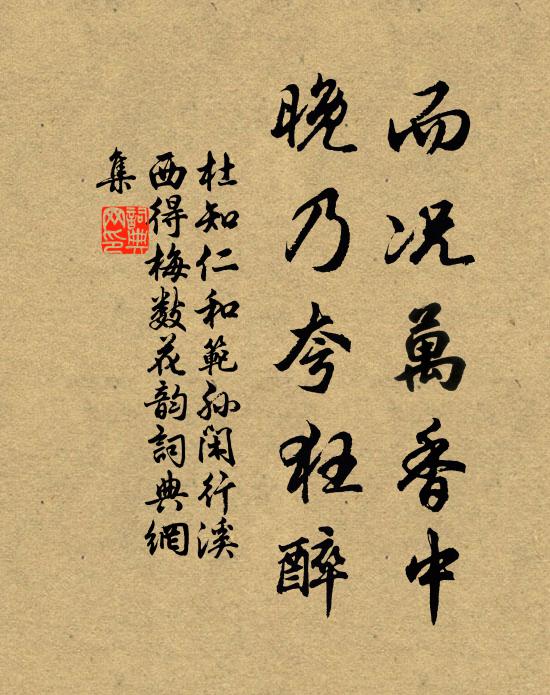 而况萬香中
晚乃夸狂醉
杜知仁和範孫閑行溪
西得梅數花韵詞典網
集
詞典網印